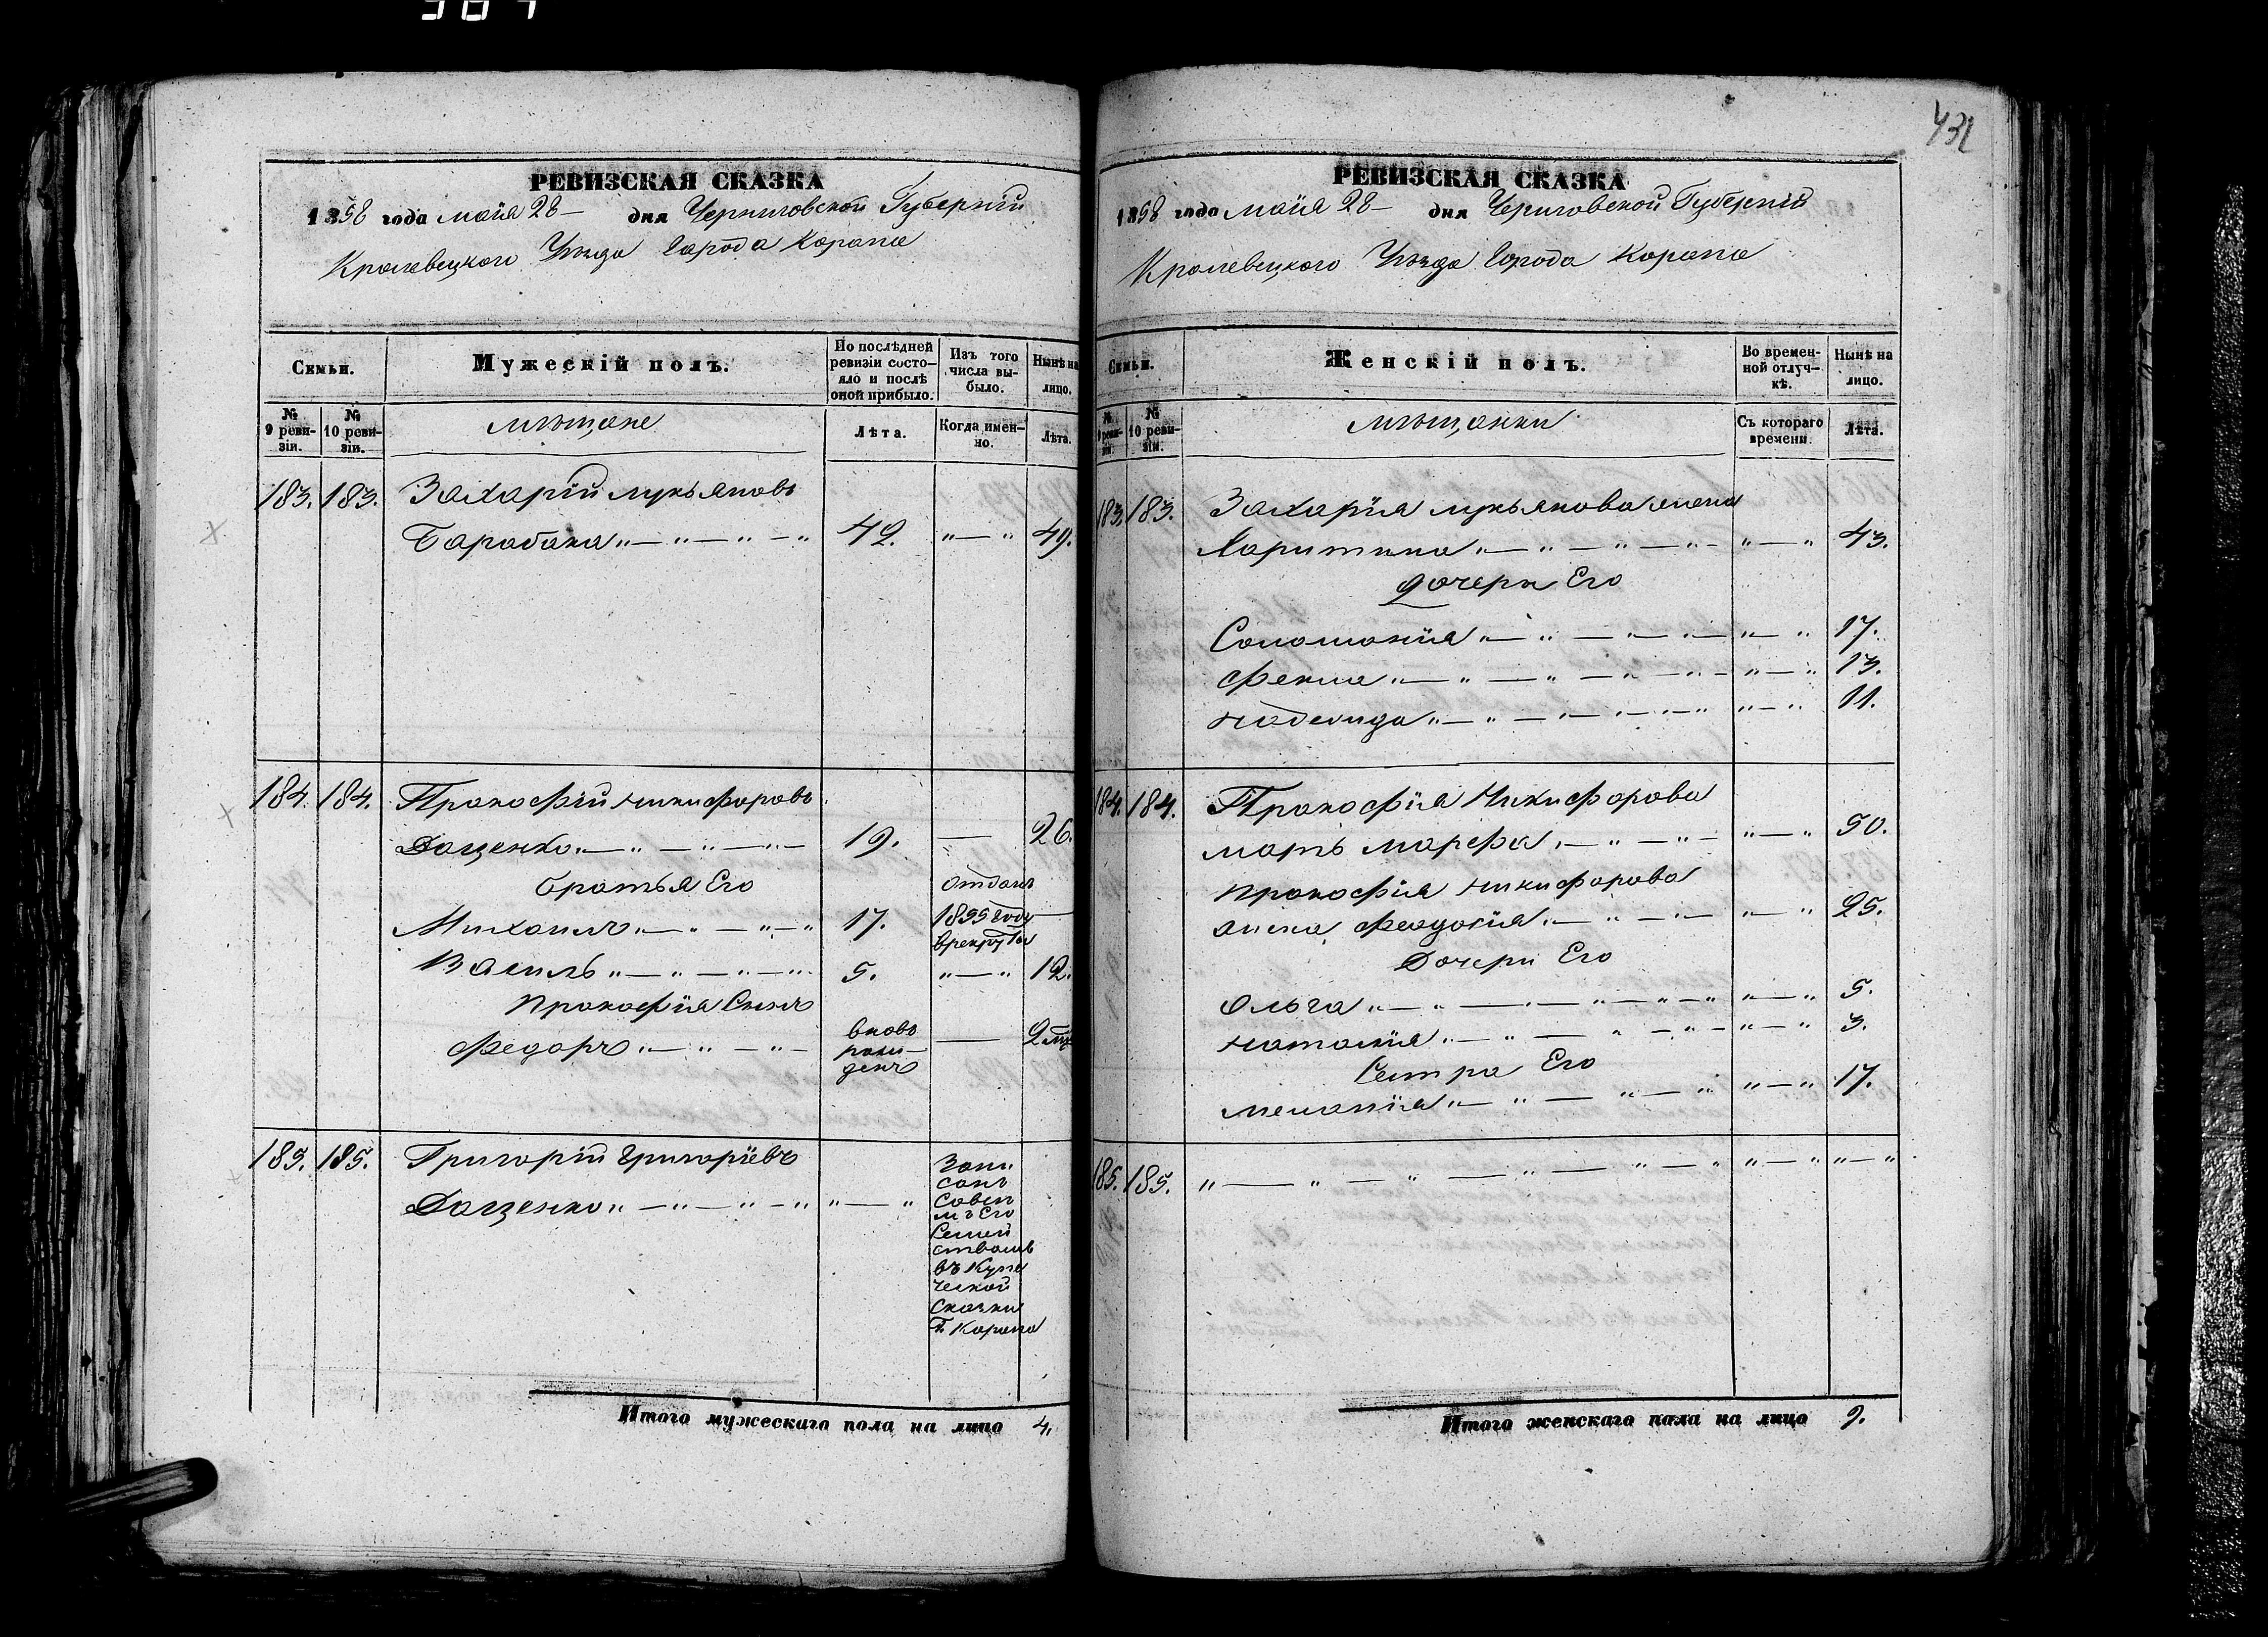 431
РЕВИЗСКАЯ СКАЗКА
1858 года маія 28 – дня Черниговской Губерніи
Кролевецкого Уѣзда Города Коропа
Семьи.
Мужескій полъ.
По послѣдней ревизіи состояло и послѣ оной прибыло.
Изъ того числа выбыло.
Нынѣ на лицо.
№ 9 ревизіи.
№ 10 ревизіи.
мѣщане
Лѣта.
Когда именно.
Лѣта.
183. 183. Захарій лукьяновъ
Барабаха „ — „ — „ — „ 42. „ — „ 49.
184. 184. Прокофій Никифоровъ
Дащенко „ — „ — „ — 19. — 26.
братья Его
Михаилъ „ — „ — „ — „ 17. отданъ 1855 году врекруты —
Василь „ — „ — „ — „ 5. „ — „ 12.
Прокофія Сынъ
Федоръ „ — „ — „ — вновь рожденъ — 2 мц
185. 185. Григорій Григоріевъ
Дащенко „ — „ — „ — „ „ — „ Запи
санъ
Совсѣ
мъ Его
Семей
ствомъ
въ Купе
ческой
Сказки
Г. Коропа
Итого мужескаго пола на лицо 4.
РЕВИЗСКАЯ СКАЗКА
1858 года маія 28 – дня Черниговской Губерніи
Кролевецкого Уѣзда Города Коропа
Семьи.
Женскій полъ.
Во временной отлучкѣ.
Нынѣ на лицо.
№ 9 ревизіи.
№ 10 ревизіи.
мѣщанки
Съ котораго времени.
Лѣта.
183. 183. Захарія лукьянова жена
Харитина „ — „ — „ — „ — „ — „ 43.
дочери Его
Соломонія „ — „ — „ — „ — „ — „ 17.
Фекла „ — „ — „ — „ — „ — „ 13.
Надежда „ — „ — „ — „ — „ „ — „ 11.
184. 184. Прокофія Никифорова
мать марфа „ — „ — „ — „ — „ 50.
Прокофія Никифорова
жена Феодосія „ — „ — „ — „ — „ 25.
Дочери Его
Ольга „ — „ — „ — „ — „ — „ „ — „ 5.
Наталія „ — „ — „ — „ — „ — „ 3.
Сестра Его
меланія „ — „ — „ — „ „ — „ 17.
185. 185. „ — „ — „ — „ — „ — „ „ — „ „ — „
Итого женскаго пола на лицо 9.